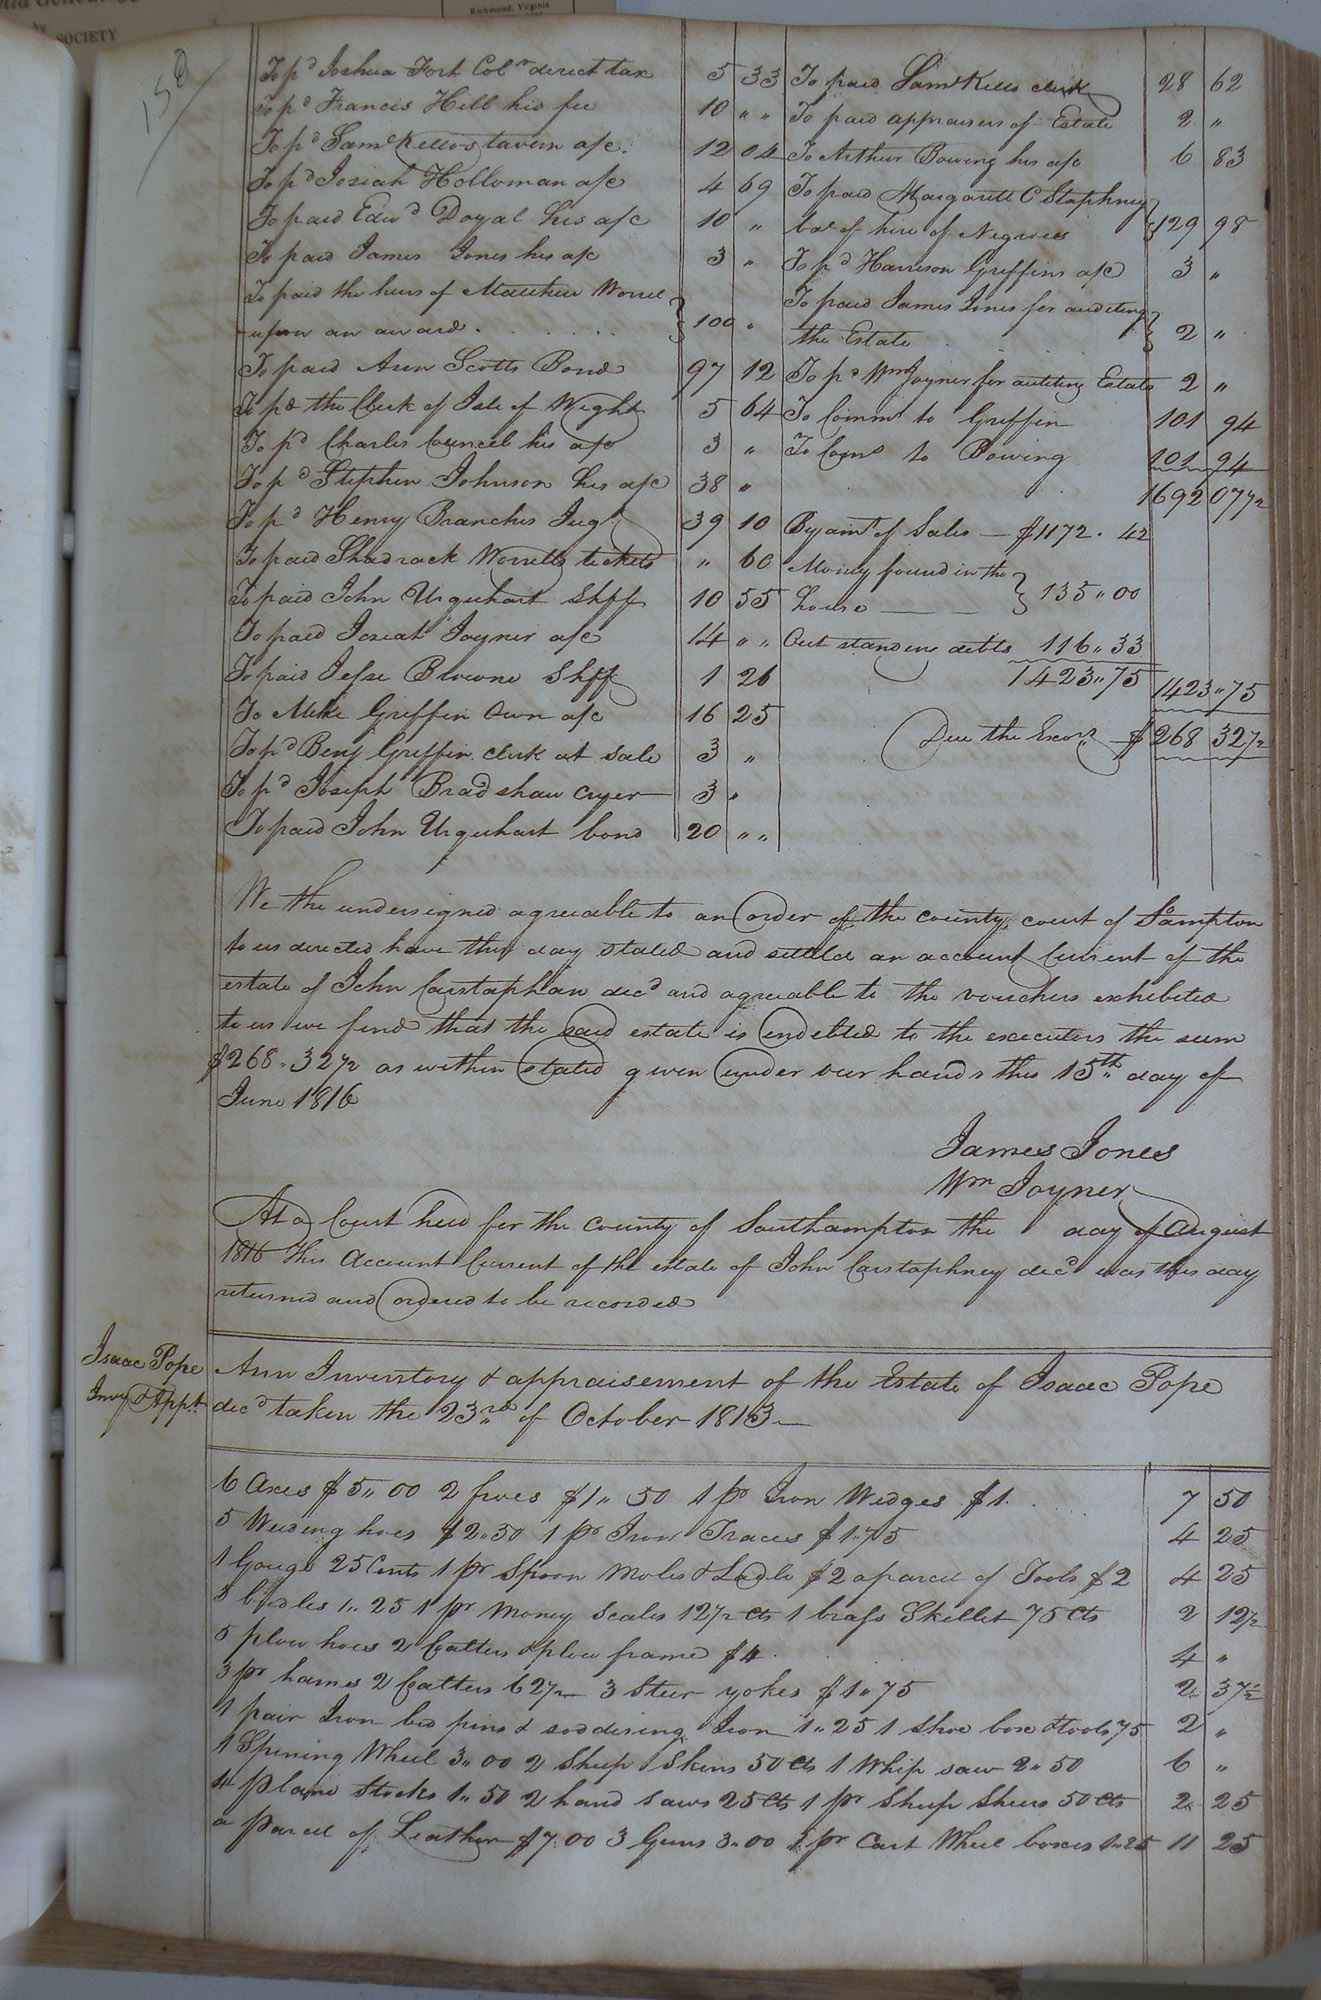 Richmond, Virginia
SOCIETY
158
To pd Joshua Fort Colr direct tax 5 33
To pd Francis Hill his fee 10 " "
To pd Saml Kellos tavern a/c. 12 04
To pd Josiah Holloman a/c 4 69
To paid Edwd Doyal his a/c 10 "
To paid James Jones his a/c 3 "
To paid the heirs of Matthew Worrel
upon an award . . . . . . 100 "
To paid Ann Scotts Bond 97 12
To pd the Clerk of Isle of Wight 5 64
To pd Charles Councel his a/c 3 "
To pd Stephen Johnson his a/c 38 "
To pd Henry Branches Jugt 39 10
To paid Shadrack Worrells tickets " 60
To paid John Urquhart Shff 10 55
To paid Josiah Joyner a/c 14 " "
To paid Jesse Browne Shff 1 26
To Mike Griffin Own a/c 16 25
To pd Benj Griffin clerk at sale 3 "
To pd Joseph Bradshaw cryer 3 "
To paid John Urquhart bond 20 " "
To paid Saml Kello clerk 28 62
To paid appraisers of Estate 2 "
To Arthur Bowing his a/c 6 83
To paid Margarett C Staphney
bal of hire of Negroes 129 98
To pd Harrison Griffins a/c 3 "
To paid James Jones for auditing
the Estate 2 "
To pd Wm Joyner for auditing Estate 2 "
To Commn to Griffin 101 94
To Comn to Bowing 101 94
1692 07 1/2
By amt of Sales — $1172 . 42
Money found in the
house — — 135 " 00
Out standing debts 116 " 33
1423 " 75 1423 " 75
Due the Exors $ 268 32 1/2
We the undersigned agreeable to an order of the county court of Sampton
to us directed have this day stated and settled an account Current of the
estate of John Carstaphan decd and agreeable to the vouchers exhibited
to us we find that the said estate is endebted to the executors the sum
$268 . 32 1/2 as within stated given under our hands this 15th day of
June 1816
James Jones
Wm Joyner
At a Court held for the county of Southampton the day of August
1816 This Account Current of the estate of John Carstaphney decd was this day
returned and ordered to be recorded
Isaac Pope
Invy & Appt
Ann Inventory & appraisement of the Estate of Isaac Pope
decd taken the 23rd of October 1813 —
6 Axes $5 " 00 2 froes $1 " 50 1 pr Iron Wedges $1 . 7 50
5 Weeding hoes $2 " 50 1 pr Iron Traces $1 " 75 4 25
1 Gouge 25 Cents 1 pr Spoon Moles & Ladle $2 a parcel of Tools $2 4 25
3 bridles 1 " 25 1 pr Money Scales 12 1/2 Cts 1 brass Skillet 75 Cts 2 12 1/2
5 plow hoes 2 Catters & plow frame $4 . 4 "
3 pr hames 2 Catters 62 1/2 3 Steer yokes $1 " 75 2 37 1/2
1 pair Iron bed pins & soddering Iron 1 " 25 1 Shoe box & tools 75 2 "
1 Spining Wheel 3 " 00 2 Sheep Skins 50 Cts 1 Whip saw 2 " 50 6 "
4 plane Stocks 1 " 50 2 hand saws 25 Cts 1 pr Sheep Shers 50 Cts 2 25
a parcel of Leather $7 " 00 3 Guns 3 " 00 1 pr Cart Wheel boxes 1 " 25 11 25